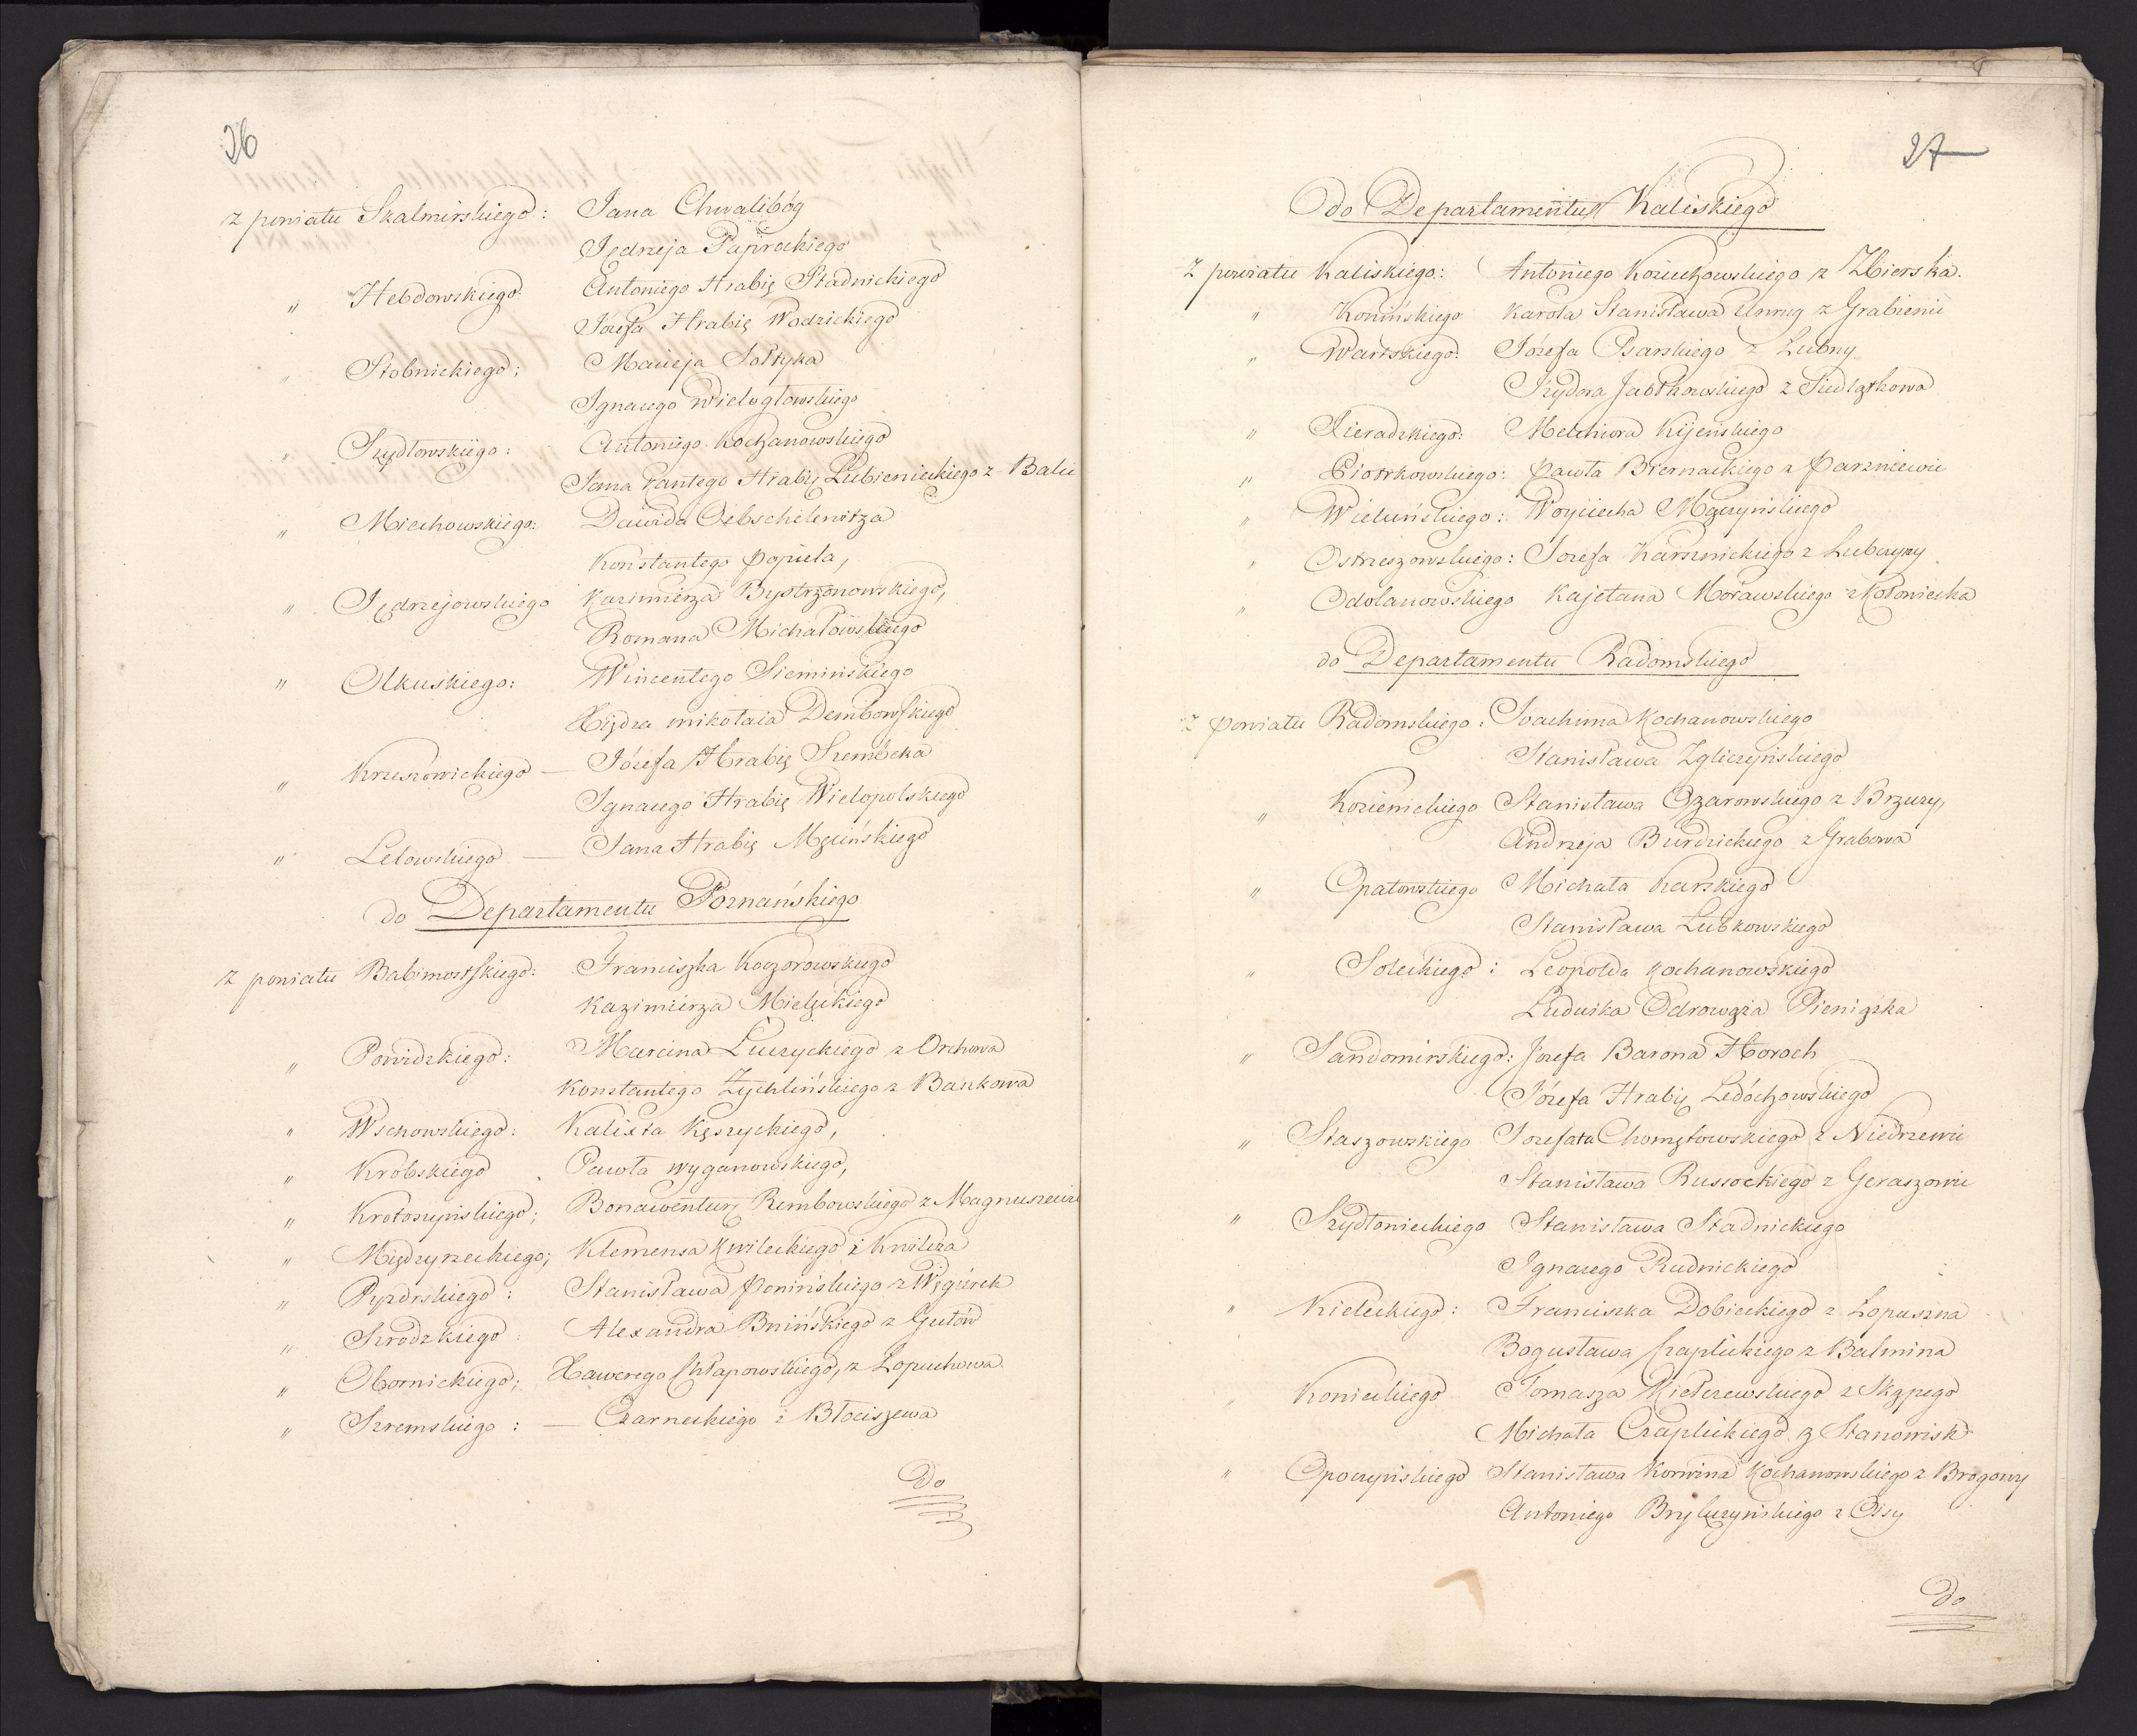 26
z powiatu Skalmirskiego: Jana Chwalibóg
Jędrzeja Papirockiego
" Hebdowskiego: Antoniego Hrabię Stadnickiego
Józefa Hrabię Wodzickiego
" Stobnickiego: Macieja Sołtyka
Ignacego Wielogłowskiego
" Szydłowskiego: Antoniego Kochanowskiego
Jana Kantego Hrabię Łubienieckiego z Balic
" Miechowskiego: Dawida Oebschelwitza
Konstantego Popiela,
" Jędrzejowskiego Kazimierza Bystrzonowskiego,
Romana Michałowskiego
" Olkuskiego: Wincentego Siemińskiego
Xiędza mikołaia Dembowskiego
" Krzeszowickiego — Józefa Hrabię Szembeka
Ignacego Hrabię Wielopolskiego
" Lelowskiego — Jana Hrabię Męcińskiego
do Departamentu Poznańskiego
z powiatu Babimostskiego: Franciszka Koczorowskiego
Kazimierza Mielęckiego
" Powidzkiego: Marcina Łuczyckiego z Orchowa
Konstantego Zychlińskiego z Baszkowa
" Wschowskiego: Kalixta Kęszyckiego,
" Krobskiego Pawła wyganowskiego,
" Krotoszyńskiego; Bonawenturę Rembowskiego z Magnuszewic
" Międzyrzeckiego; Klemensa Kwileckiego z Kwilcza
" Pyzdrskiego: Stanisława Ponińskiego z Węgierek
" Szrodzkiego: Alexandra Bnińskiego z Gułtów
" Obornickiego; Xawerego Chłapowskiego, z Łopuchowa
" Szremskiego: — Czarneckiego z Błociszewa
Do
27
do Departamentu Kaliskiego
z powiatu Kaliskiego: Antoniego Kożuchowskiego z Zbierska.
" Konińskiego Karola Stanisława Unrug z Grabienic
" Wartskiego: Józefa Psarskiego z Lubny
Izydora Jabłkowskiego z Siedlątkowa
" Sieradzkiego: Melchiora Kijeńskiego
" Piotrkowskiego: Pawła Biernackiego z Parzniewic
" Wieluńskiego: Woyciecha Męczyńskiego
" Ostrzeszowskiego: Jozefa Karsznickiego z Lubczyny
" Odolanowskiego Kajetana Morawskiego z Kotowiecka
do Departamentu Radomskiego
z powiatu Radomskiego: Joachima Kochanowskiego
Stanisława Zgliczyńskiego
" Kozienickiego Stanisława Ożarowskiego z Brzuzy,
Andrzeja Burdzickiego z Grabowa
" Opatowskiego Michała Karskiego
Stanisława Lubkowskiego
" Soleckiego: Leopolda Kochanowskiego
Ludwika Odrowąża Pieniążka
" Sandomirskiego: Jozefa Barona Horoch
Józefa Hrabię Ledóchowskiego
" Staszowskiego Jozefata Chomętowskiego z Niedrzewic
Stanisława Russockiego z Geraszowic
" Szydłowieckiego Stanisława Stadnickiego
Ignacego Rudnickiego
" Kieleckiego: Franciszka Dobieckiego z Łopuszna
Bogusława Czaplickiego z Balmina
" Konieckiego Tomasza Kiełczewskiego z Skąpego
Michała Czaplickiego z Stanowisk
" Opoczyńskiego Stanisława Korwina Kochanowskiego z Brogowy
Antoniego Bryluzyńskiego z Ossy
Do